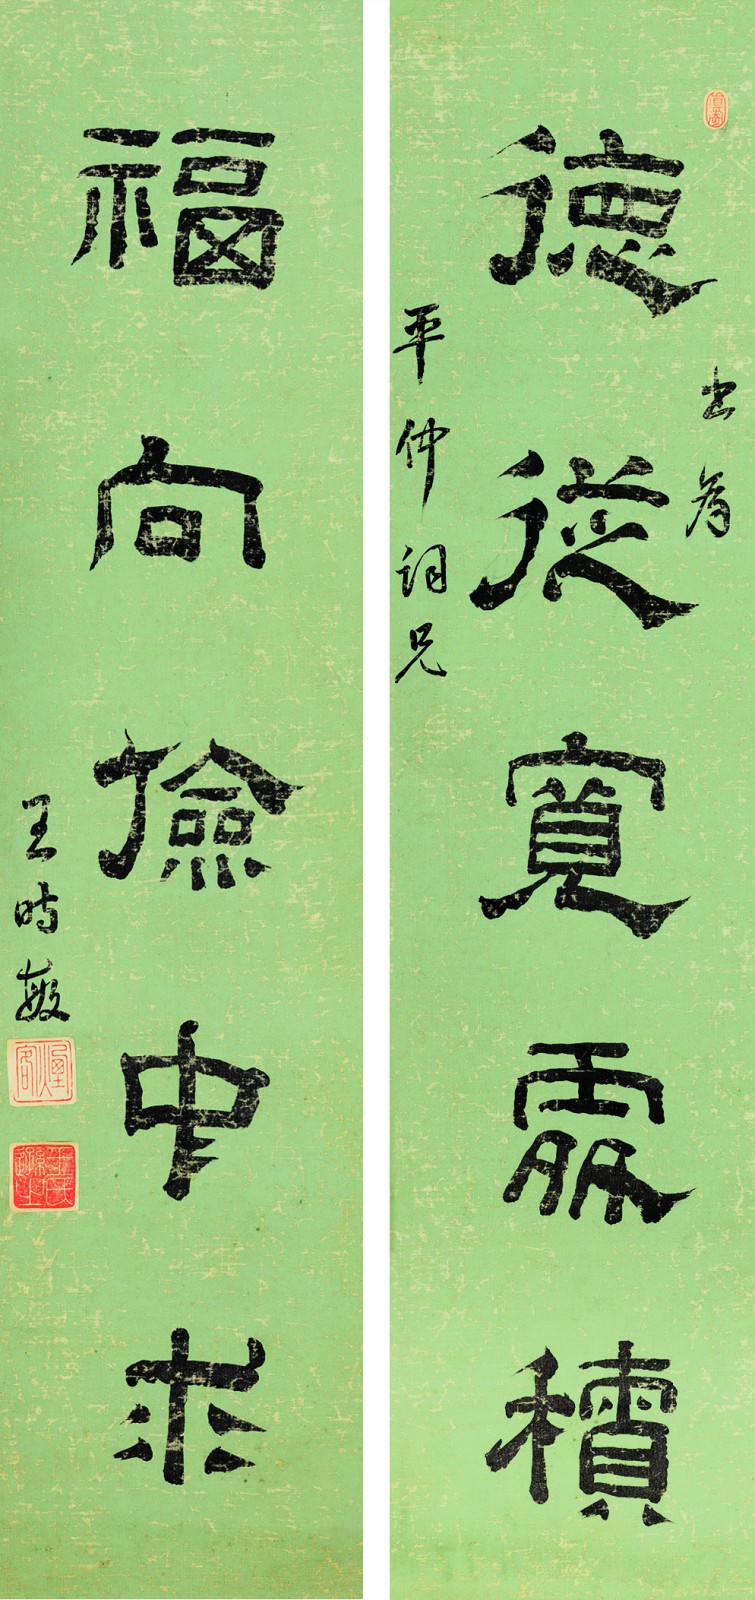 書為
德從寬處積
平仲詞兄
福向撿中求
王時敏
煙客